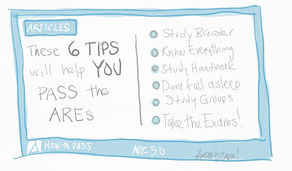 ARTICLES
These 6 TIPS
will help YOU
PASS the
AREs
Study Broader
Know Everything
Study Handbook
Dont fall asleep
Study Groups
Take the Exams!
HOW to PASS
ARE 5.0